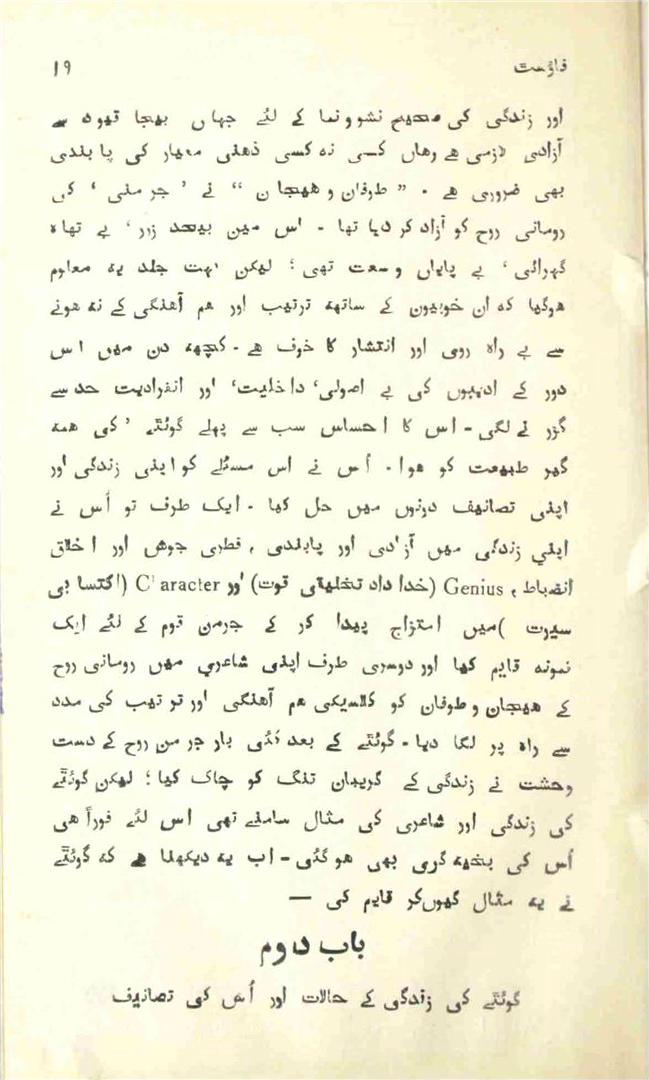 فاؤست ۱۹
اور زندگی کی صحیح نشو و نما کے لئے جہاں بیجا قیود سے
آزادی لازمی ہے وہاں کسی نہ کسی ذہنی معیار کی پابندی
بھی ضروری ہے ۔ ” طوفان و ہیجان “ نے ’ جرمنی ‘ کی
رومانی روح کو آزاد کر دیا تھا ۔ اس میں بیحد زور ‘ بے تھاہ
گہرائی ‘ بے پایاں وسعت تھی ؛ لیکن بہت جلد یہ معلوم
ہوگیا کہ ان خوبیوں کے ساتھ ترتیب اور ہم آہنگی کے نہ ہونے
سے بے راہ روی اور انتشار کا خوف ہے ۔ کچھ دن میں اس
دور کے ادیبوں کی بے اصولی ‘ داخلیت ‘ اور انفرادیت حد سے
گزرنے لگی ۔ اس کا احساس سب سے پہلے گوئٹے ‘ کی ہمہ
گیر طبیعت کو ہوا ۔ اُس نے اس مسئلے کو اپنی زندگی اور
اپنی تصانیف دونوں میں حل کیا ۔ ایک طرف تو اُس نے
اپنی زندگی میں آزادی اور پابندی ، فطری جوش اور اخلاق
انضباط ، Genius (خدا داد تخلیقی قوت) اور Character (اکتسابی
سیرت )میں امتزاج پیدا کر کے جرمن قوم کے لئے ایک
نمونہ قایم کیا اور دوسری طرف اپنی شاعری میں رومانی روح
کے ہیجان و طوفان کو کلاسیکی ہم آہنگی اور ترتیب کی مدد
سے راہ پر لگا دیا ۔ گوئٹے کے بعد کئی بار جرمن روح کے دست
وحشت نے زندگی کے گریبان تنگ کو چاک کیا ؛ لیکن گوئٹے
کی زندگی اور شاعری کی مثال سامنے تھی اس لئے فوراً ہی
اُس کی بخیہ گری بھی ہو گئی ۔ اب یہ دیکھنا ہے کہ گوئٹے
نے یہ مثال کیوں کر قایم کی —
باب دوم
گوئٹے کی زندگی کے حالات اور اُس کی تصانیف